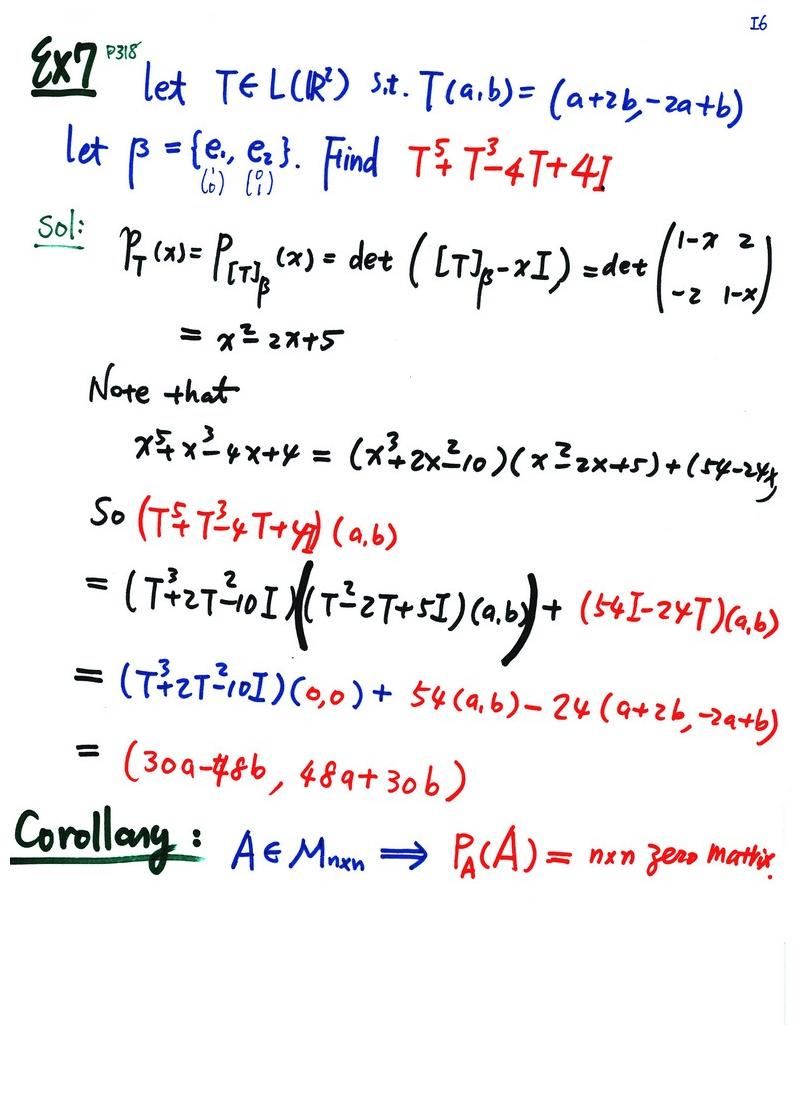 I6
Ex7 P318 let T∈L(ℝ²) s.t. T(a,b) = (a+2b, -2a+b)
let β = {e₁, e₂}. Find T⁵+T³-4T+4I
(1 0) (0 1)
Sol: P_T(x) = P_[T]_β(x) = det([T]_β - xI) = det(1-x 2
-2 1-x)
= x²-2x+5
Note that
x⁵+x³-4x+4 = (x³+2x²-10)(x²-2x+5)+(54-24x)
So (T⁵+T³-4T+4I)(a,b)
= (T³+2T²-10I)((T²-2T+5I)(a,b)) + (54I-24T)(a,b)
= (T³+2T²-10I)(0,0) + 54(a,b) - 24(a+2b, -2a+b)
= (30a-48b, 48a+30b)
Corollary: A∈M_{n×n} ⟹ P_A(A) = n×n zero matrix.